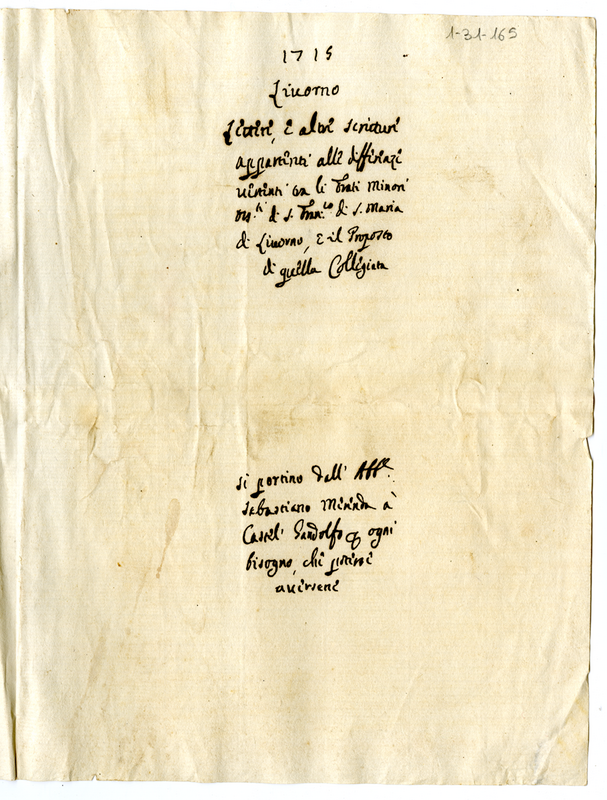 1-31-165
1715
Livorno
Lettere, e altre scritture
appartenenti alle differenze
vertenti tra li Frati Minori
Oss.ti di S. Fran.co di S. Maria
di Livorno, e il Proposto
di quella Collegiata
si portino dall' Abb.e
Sebastiano Merenda à
Castel Gandolfo p ogni
bisogno, che potesse
aversene